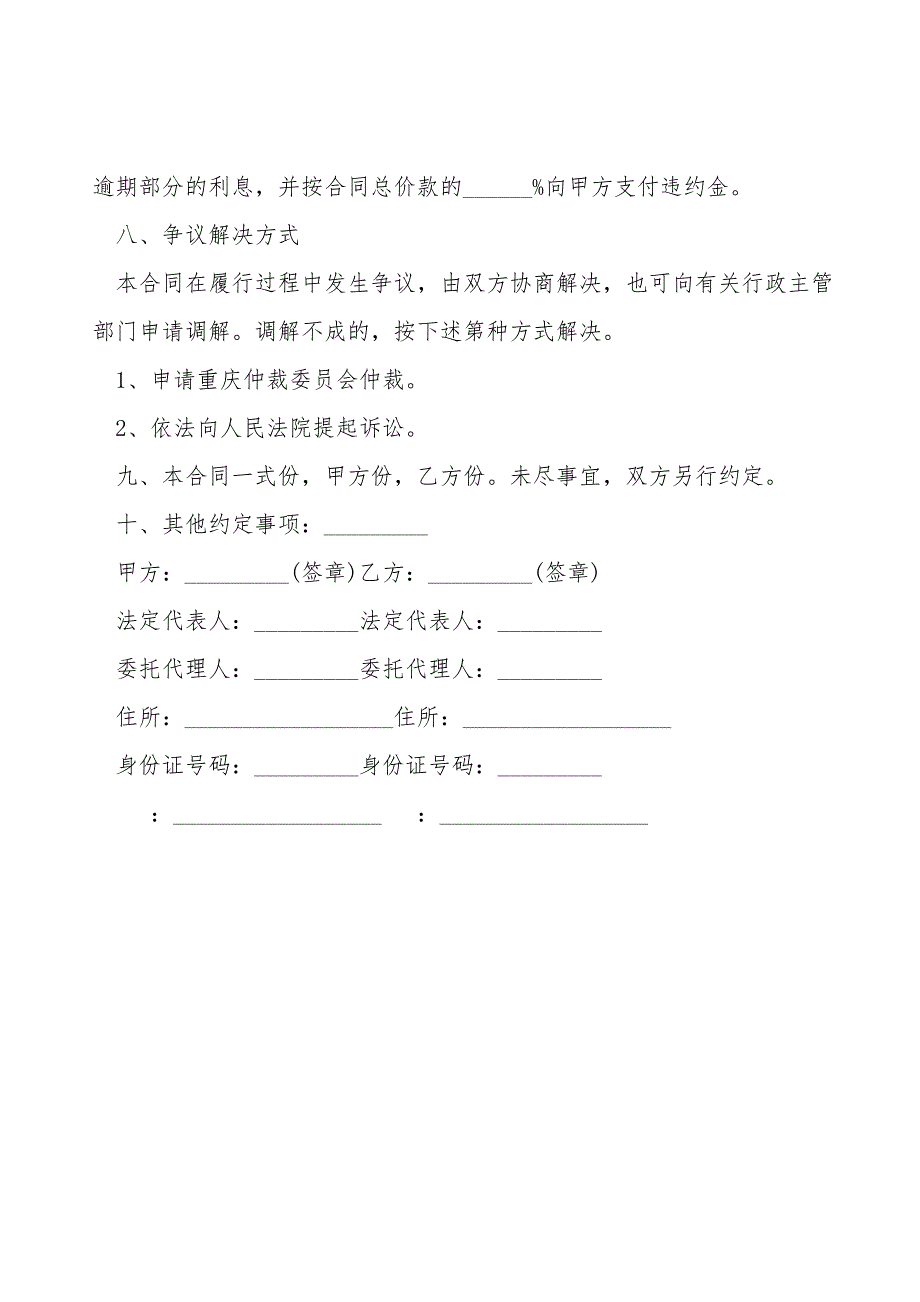 逾期部分的利息，并按合同总价款的______%向甲方支付违约金。
八、争议解决方式
本合同在履行过程中发生争议，由双方协商解决，也可向有关行政主管
部门申请调解。调解不成的，按下述第种方式解决。
1、申请重庆仲裁委员会仲裁。
2、依法向人民法院提起诉讼。
九、本合同一式份，甲方份，乙方份。未尽事宜，双方另行约定。
十、其他约定事项：_________
甲方：_________(签章)乙方：_________(签章)
法定代表人：_________法定代表人：_________
委托代理人：_________委托代理人：_________
住所：__________________住所：__________________
身份证号码：_________身份证号码：_________
：__________________ ：__________________